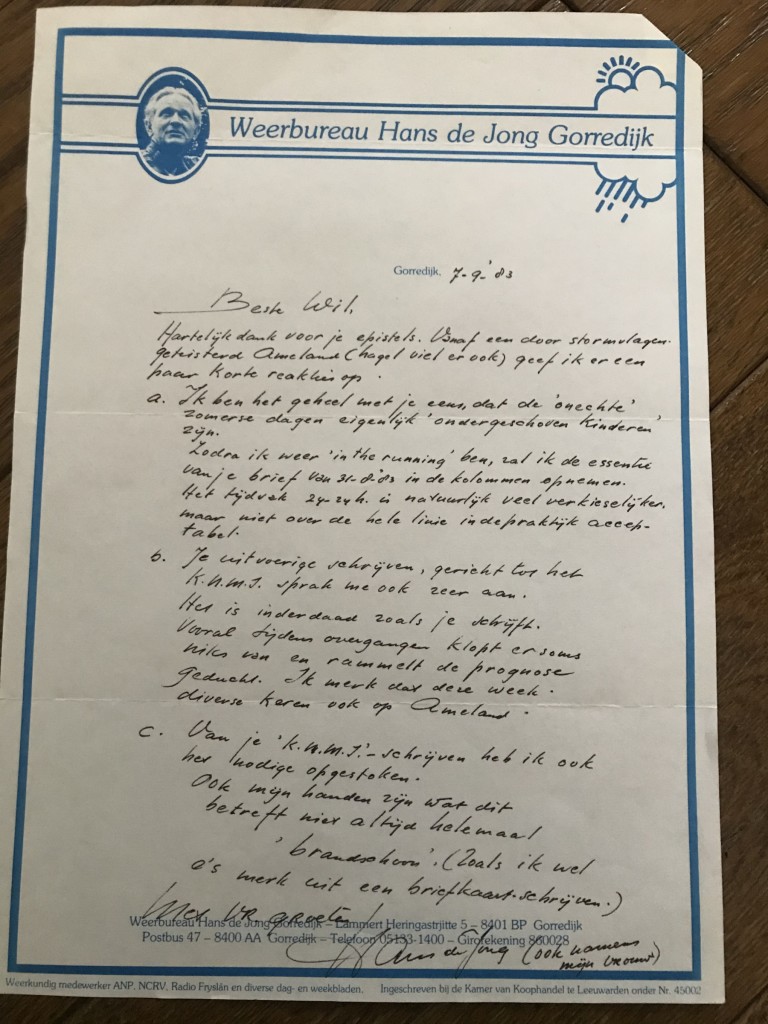 Weerbureau Hans de Jong Gorredijk
Gorredijk, 7-9-'83
Beste Wil,
Hartelijk dank voor je epistels. Vanaf een door stormvlagen
geteisterd Ameland (hagel viel er ook) geef ik er een
paar korte reakties op.
a. Ik ben het geheel met je eens, dat de 'onechte'
zomerse dagen eigenlijk 'ondergeschoven kinderen'
zijn.
Zodra ik weer 'in the running' ben, zal ik de essentie
van je brief van 31-8-'83 in de kolommen opnemen.
Het tijdvak 24-24h. is natuurlijk veel verkieselijker,
maar niet over de hele linie in de praktijk accep-
tabel.
b. Je uitvoerige schrijven, gericht tot het
K.N.M.I. sprak me ook zeer aan.
Het is inderdaad zoals je schrijft.
Vooral tijdens overgangen klopt er soms
niks van en rammelt de prognose
geducht. Ik merk dat deze week
diverse keren ook op Ameland.
c. Van je 'K.N.M.I.'-schrijven heb ik ook
het nodige opgestoken.
Ook mijn handen zijn wat dit
betreft niet altijd helemaal
'brandschoon'. (Zoals ik wel
e's merk uit een briefkaart-schrijven.)
Met vr. groeten!
Hans de Jong (ook namens
mijn vrouw)
Weerbureau Hans de Jong Gorredijk – Lammert Heringastrjitte 5 – 8401 BP Gorredijk
Postbus 47 – 8400 AA Gorredijk – Telefoon 05133-1400 – Girorekening 860028
Weerkundig medewerker ANP, NCRV, Radio Fryslân en diverse dag- en weekbladen. Ingeschreven bij de Kamer van Koophandel te Leeuwarden onder Nr. 45002